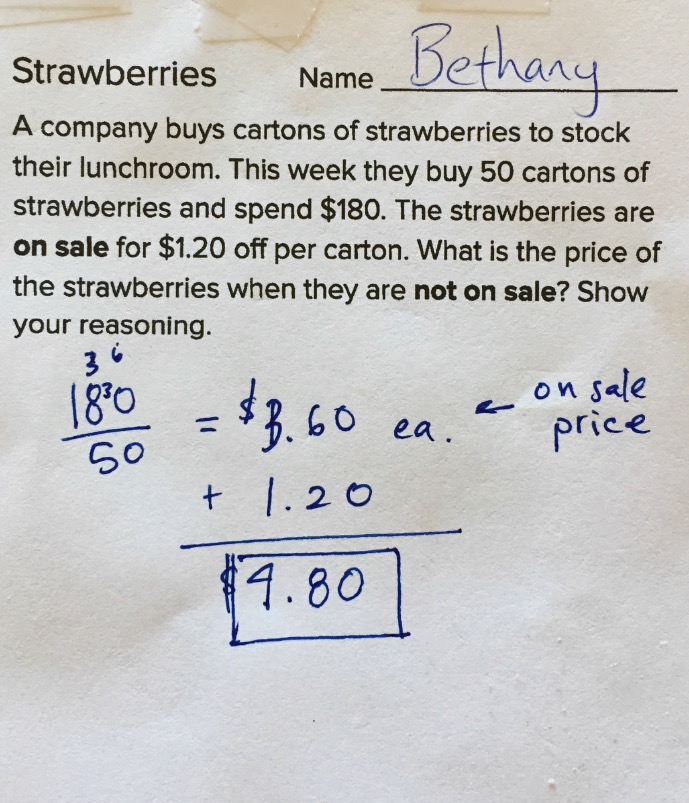 Strawberries Name Bethany
A company buys cartons of strawberries to stock
their lunchroom. This week they buy 50 cartons of
strawberries and spend $180. The strawberries are
on sale for $1.20 off per carton. What is the price of
the strawberries when they are not on sale? Show
your reasoning.
3 6
18³0
50
= $3.60 ea. ← on sale
price
+ 1.20
$4.80